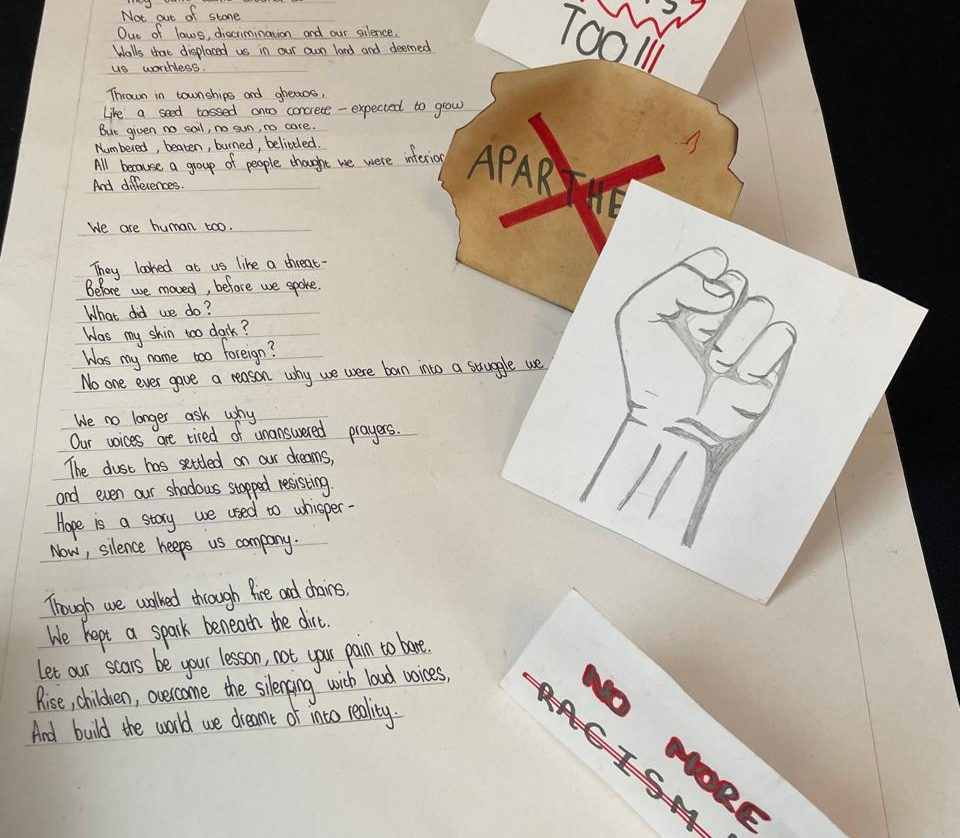 Not out of stone
Out of laws, discrimination and our silence.
Walls that displaced us in our own land and deemed
us worthless.
Thrown in townships and ghettos,
Like a seed tossed onto concrete - expected to grow
But given no soil, no sun, no care.
Numbered, beaten, burned, belittled.
All because a group of people thought we were inferior
And differences.
We are human too.
They looked at us like a threat-
Before we moved, before we spoke.
What did we do?
Was my skin too dark?
Was my name too foreign?
No one ever gave a reason why we were born into a struggle we
We no longer ask why
Our voices are tired of unanswered prayers.
The dust has settled on our dreams,
and even our shadows stopped resisting.
Hope is a story we used to whisper-
Now, silence keeps us company.
Though we walked through fire and chains,
We kept a spark beneath the dirt.
Let our scars be your lesson, not your pain to bare.
Rise, children, overcome the silencing with loud voices,
And build the world we dreamt of into reality.
TOO!!!
APARTHE
NO MORE
RACISM